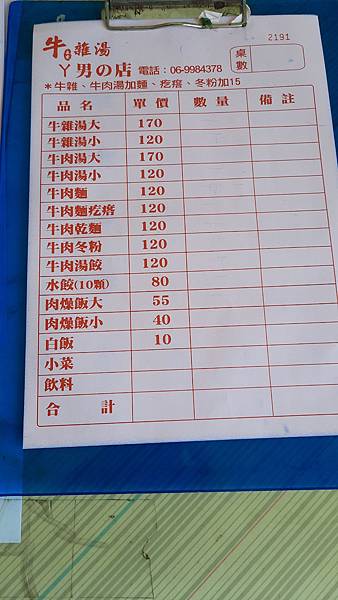 2191
牛雜湯
ㄚ男の店 電話：06-9984378 桌數
＊牛雜、牛肉湯加麵、疙瘩、冬粉加15
品名 單價 數量 備註
牛雜湯大 170
牛雜湯小 120
牛肉湯大 170
牛肉湯小 120
牛肉麵 120
牛肉麵疙瘩 120
牛肉乾麵 120
牛肉冬粉 120
牛肉湯餃 120
水餃(10顆) 80
肉燥飯大 55
肉燥飯小 40
白飯 10
小菜
飲料
合計